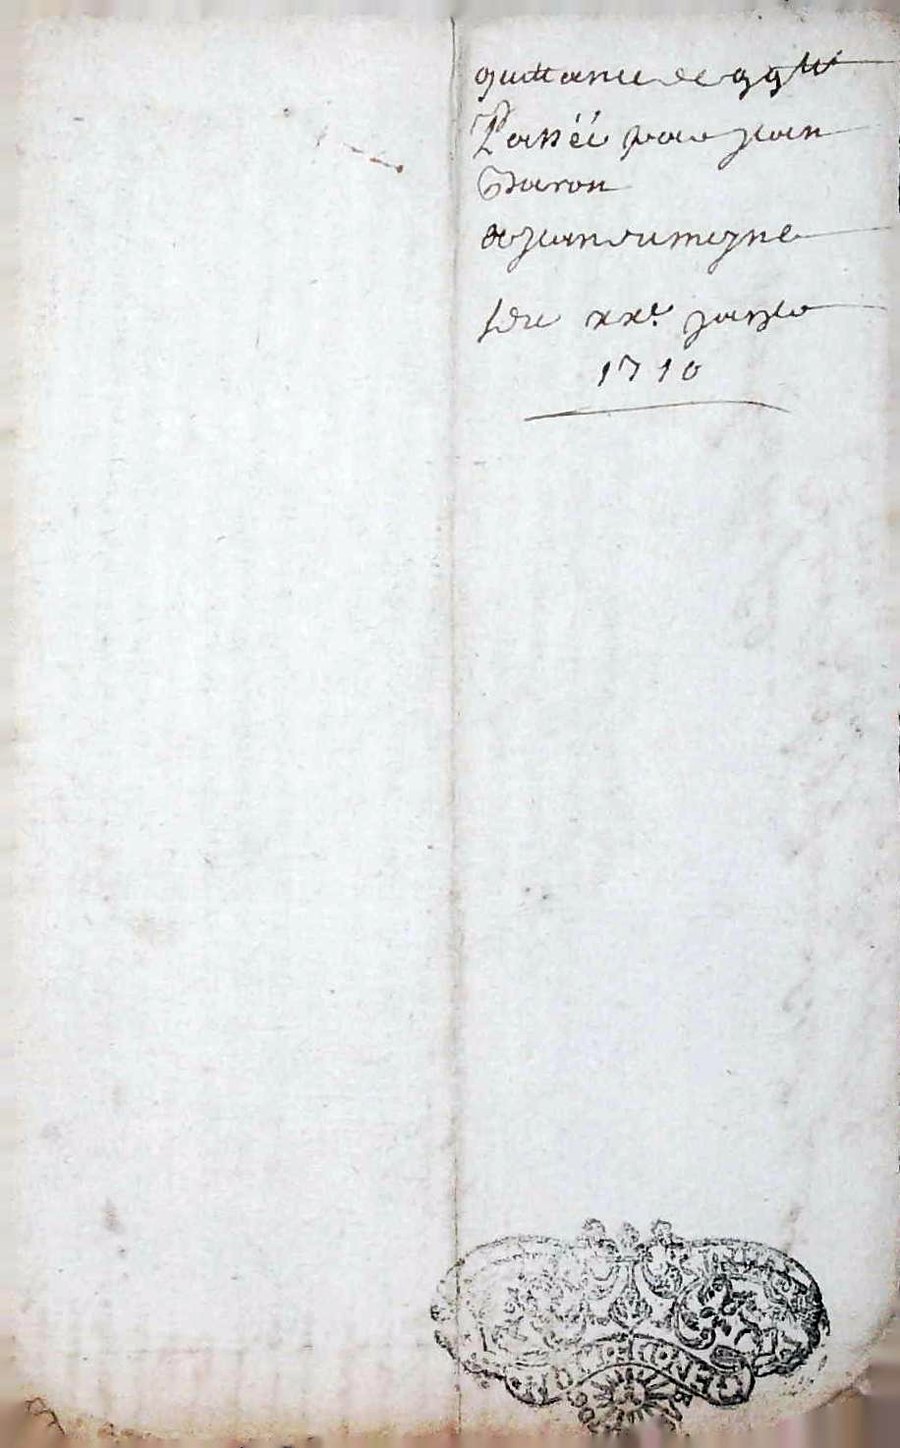 quittance de 99 ll
Passée par jean
Baron
à jean dumeyne
Du xxe janvier
1710